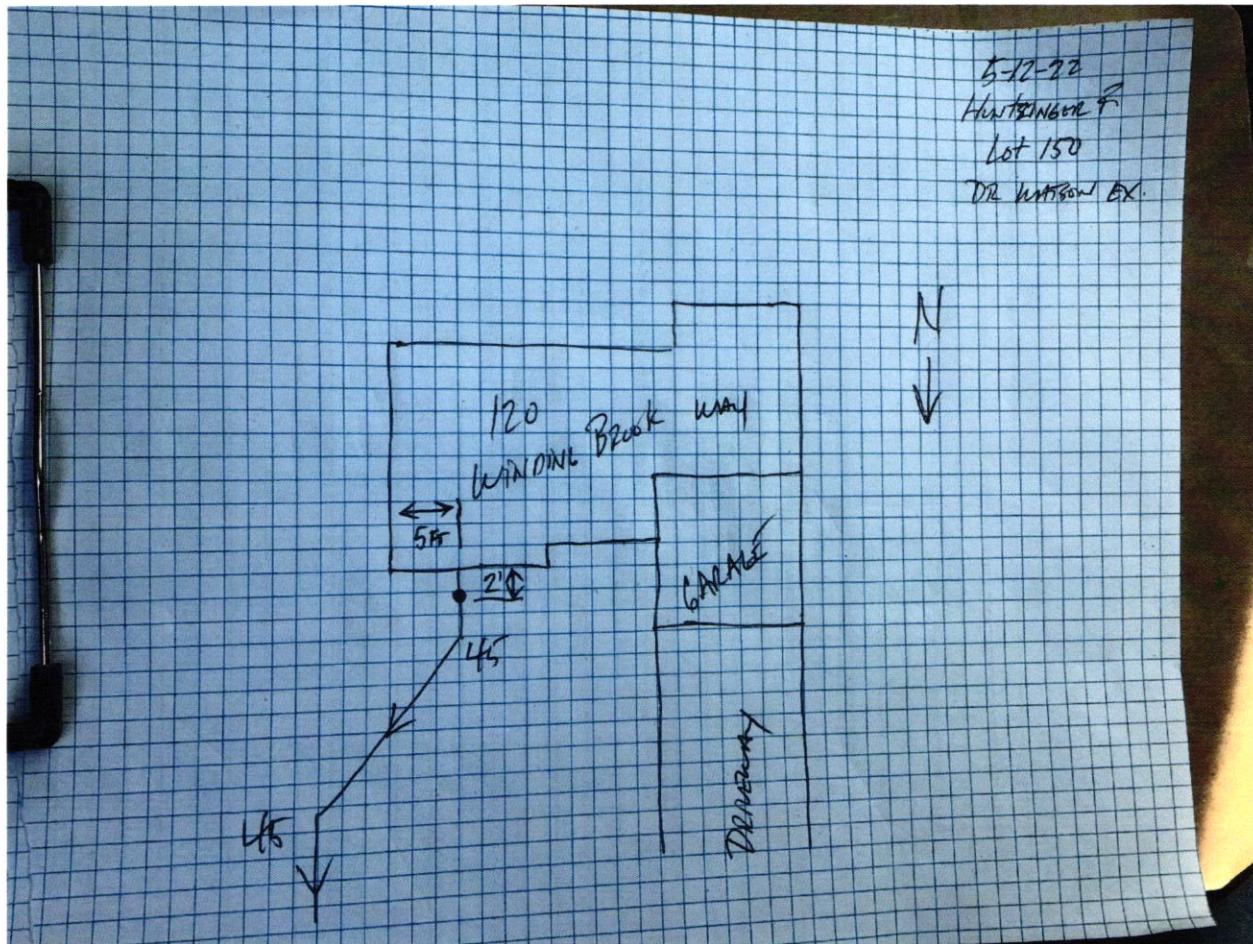 5-12-22
HUNTSINGER F
Lot 150
DR WATSON EX.
N
120
WINDING BROOK WAY
5ft
2'
GARAGE
45
DRIVEWAY
45